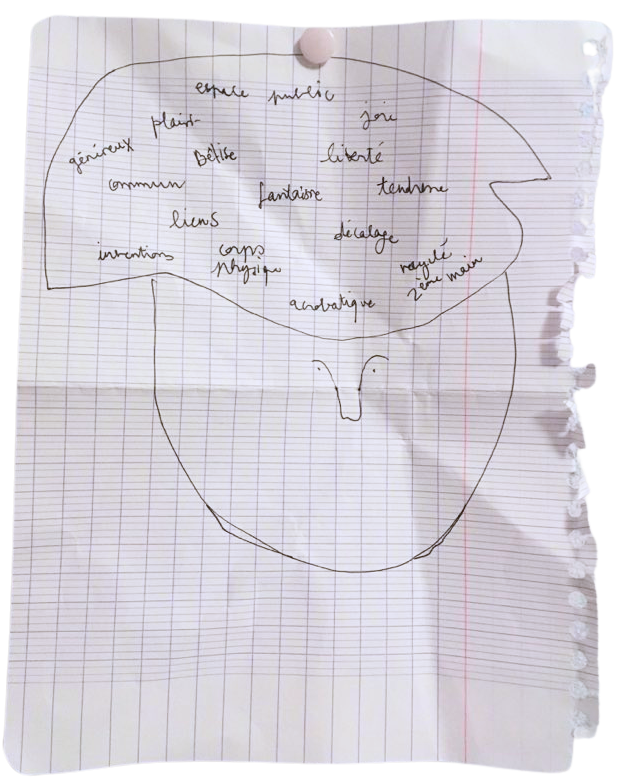 espace public
joie
plaisir
généreux
Bêtise
liberté
commun
fantaisie
tendresse
liens
décalage
inventions
corps
physique
recyclé
2ème main
acrobatique